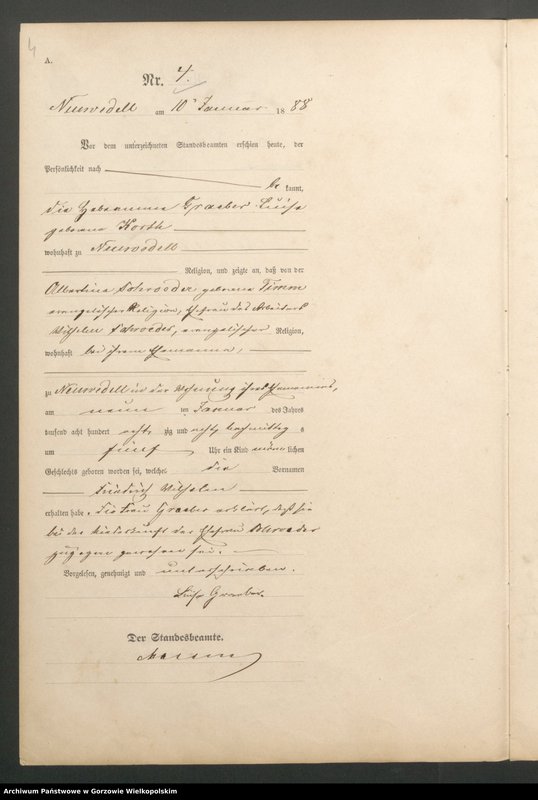 4
A.
Nr. 4.
Neuwedell am 10 Januar 1888
Vor dem unterzeichneten Standesbeamten erschien heute, der
Persönlichkeit nach
be kannt,
die Hebamme Graeber Luise
geborene Korth
wohnhaft zu Neuwedell
Religion, und zeigte an, daß von der
Albertine Schroeder geborene Timm
evangelischer Religion, Ehefrau des Arbeiters
Wilhelm Schroeder, evangelischer Religion,
wohnhaft bei ihrem Ehemanne,
zu Neuwedell in der Wohnung ihres Ehemannes,
am neun ten Januar des Jahres
tausend acht hundert acht zig und acht, Nachmittags
um fünf Uhr ein Kind männlichen
Geschlechts geboren worden sei, welches die Vornamen
Friedrich Wilhelm
erhalten habe. Die Frau Graeber erklärt, daß sie
bei der Niederkunft der Ehefrau Schroeder
zugegen gewesen sei.
Vorgelesen, genehmigt und unterschrieben.
Luise Graeber.
Der Standesbeamte.
Archiwum Państwowe w Gorzowie Wielkopolskim